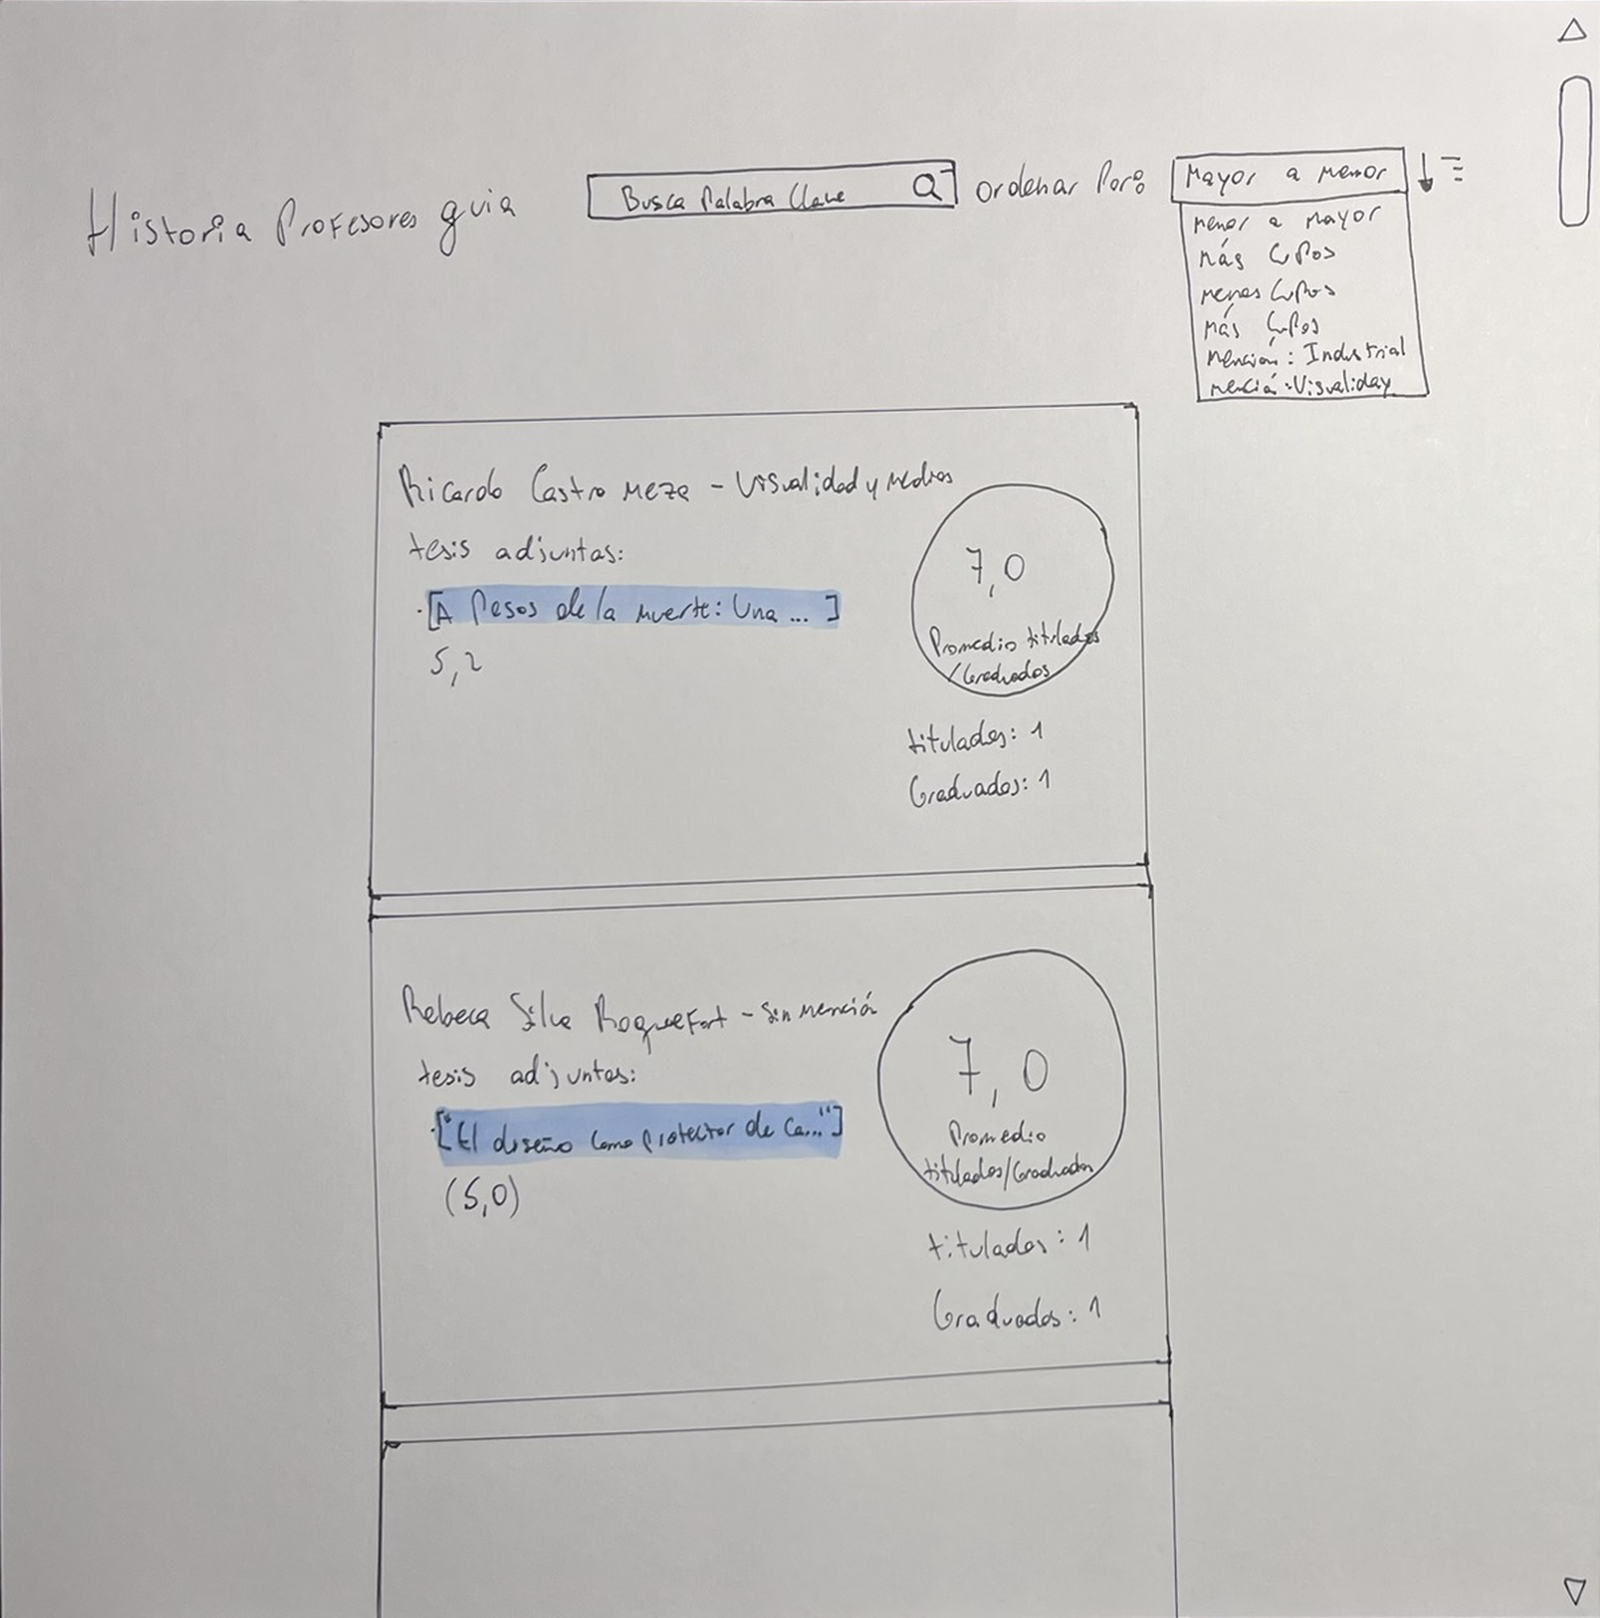 Historia Profesores guia
Busca Palabra Clave
ordenar Por:
Mayor a menor
menor a mayor
más cupos
menos cupos
más cupos
mención: Industrial
menciá: Visualiday
Ricardo Castro Meza - Visualidad y Medios
tesis adjuntas:
·[A Pesos de la muerte: Una ... ]
5,2
7,0
Promedio titulados
/Graduados
titulados: 1
Graduados: 1
Rebeca Silva Roquefort - Sin mención
tesis adjuntas:
·["El diseño como protector de Ca..."]
(5,0)
7,0
Promedio
titulados/Graduados
titulados: 1
Graduados: 1